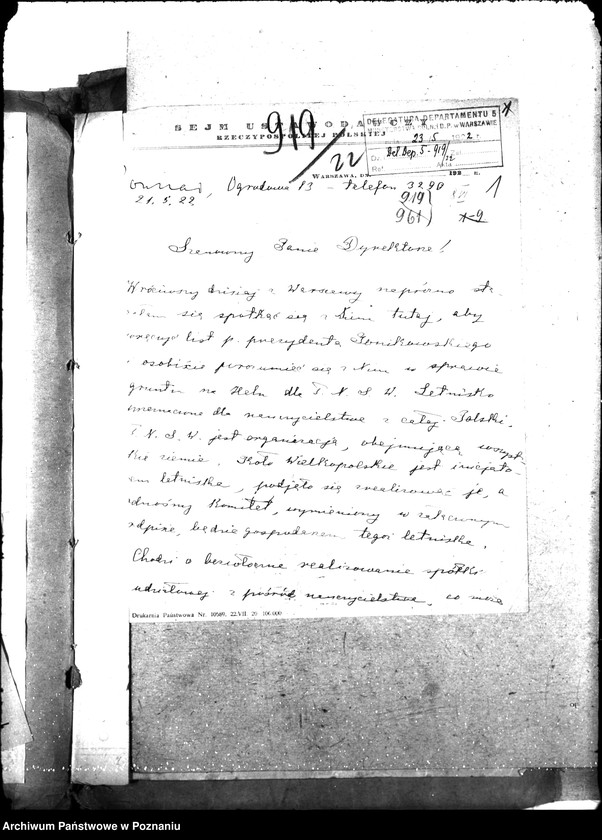 SEJM USTAWODAWCZY
RZECZYPOSPOLITEJ POLSKIEJ
919/22
DELEGATURA DEPARTAMENTU 5
w WARSZAWIE
dnia 23.5 1922 r.
Del. Dep. 5 - 919/22
WARSZAWA, DN. 192 R.
Ogrodowa 13 - telefon 3290
21. 5. 22.
919
961
1
Szanowny Panie Dyrektorze!
Wróciwszy dzisiaj z Warszawy napróżno sta-
rałem się spotkać się z Nim tutaj, aby
wręczyć list p. prezydenta Ponikowskiego
i osobiście porozumieć się z Nim w sprawie
gruntu na Helu dla T. N. S. W. Letnisko
przeznaczone dla nauczycielstwa z całej Polski.
T. N. S. W. jest organizacją, obejmującą wszyst-
kie ziemie. Koło Wielkopolskie jest inicjato-
rem letniska, podjęło się zrealizować je, a
Komitet, wymieniony w załączonym
odpisie, będzie gospodarzem tegoż letniska.
Chodzi o bezzwłoczne realizowanie spółki
udziałowej z pośród nauczycielstwa, co może
Drukarnia Państwowa Nr. 10589. 22.VII. 20. 100.000
Archiwum Państwowe w Poznaniu